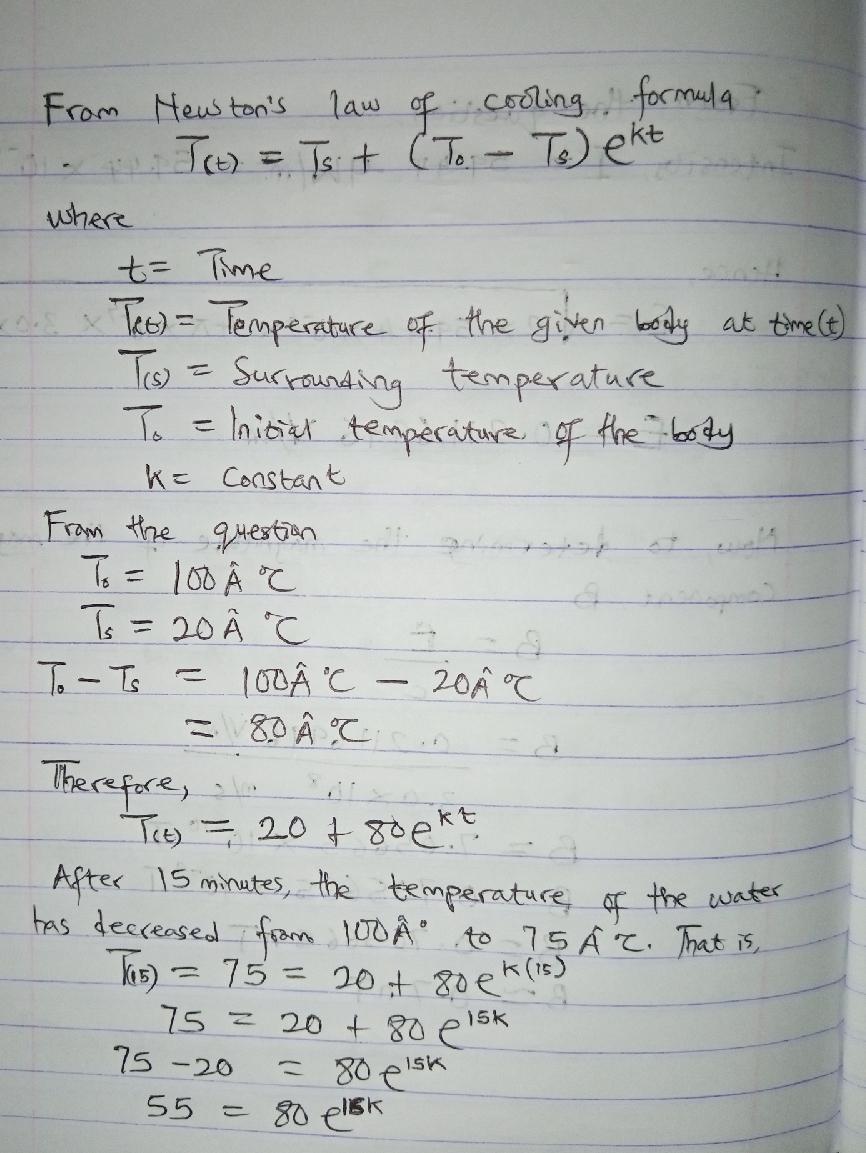 From Newton's law of cooling formula
T(t) = Ts + (To - Ts) e^kt
where
t = Time
T(t) = Temperature of the given body at time(t)
T(s) = Surrounding temperature
To = Initial temperature of the body
k = Constant
From the question
To = 100 Â °C
Ts = 20 Â °C
To - Ts = 100Â °C - 20Â °C
= 80 Â °C
Therefore,
T(t) = 20 + 80e^kt
After 15 minutes, the temperature of the water
has decreased from 100Â° to 75 Â °C. That is,
T(15) = 75 = 20 + 80e^k(15)
75 = 20 + 80 e^15k
75 - 20 = 80 e^15k
55 = 80 e^15k